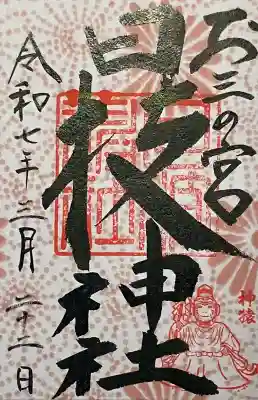 お三の宮
日枝神社
令和七年三月二十二日
神猿